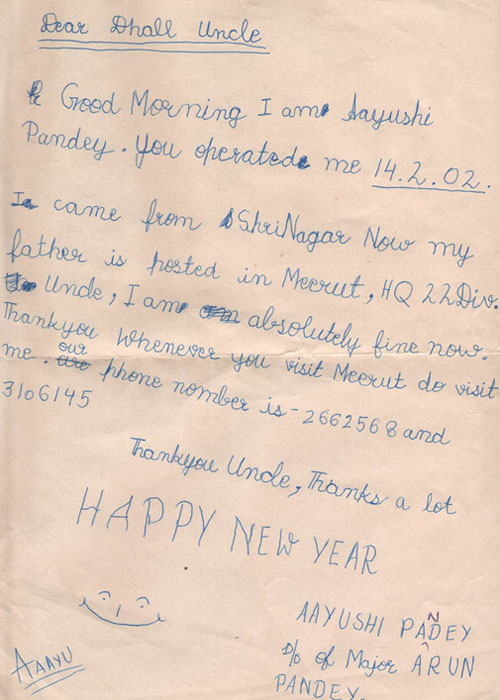 Dear Dhall Uncle
Good Morning I am Aayushi
Pandey. You operated me 14.2.02.
I came from ShriNagar Now my
father is hosted in Meerut, HQ 22Div.
Uncle, I am absolutely fine now.
Thankyou Whenever you visit Meerut do visit
me. our phone nomber is - 2662568 and
3106145
Thankyou Uncle, Thanks a lot
HAPPY NEW YEAR
AAYUSHI PANDEY
D/o of Major ARUN
PANDEY.
AAAYU